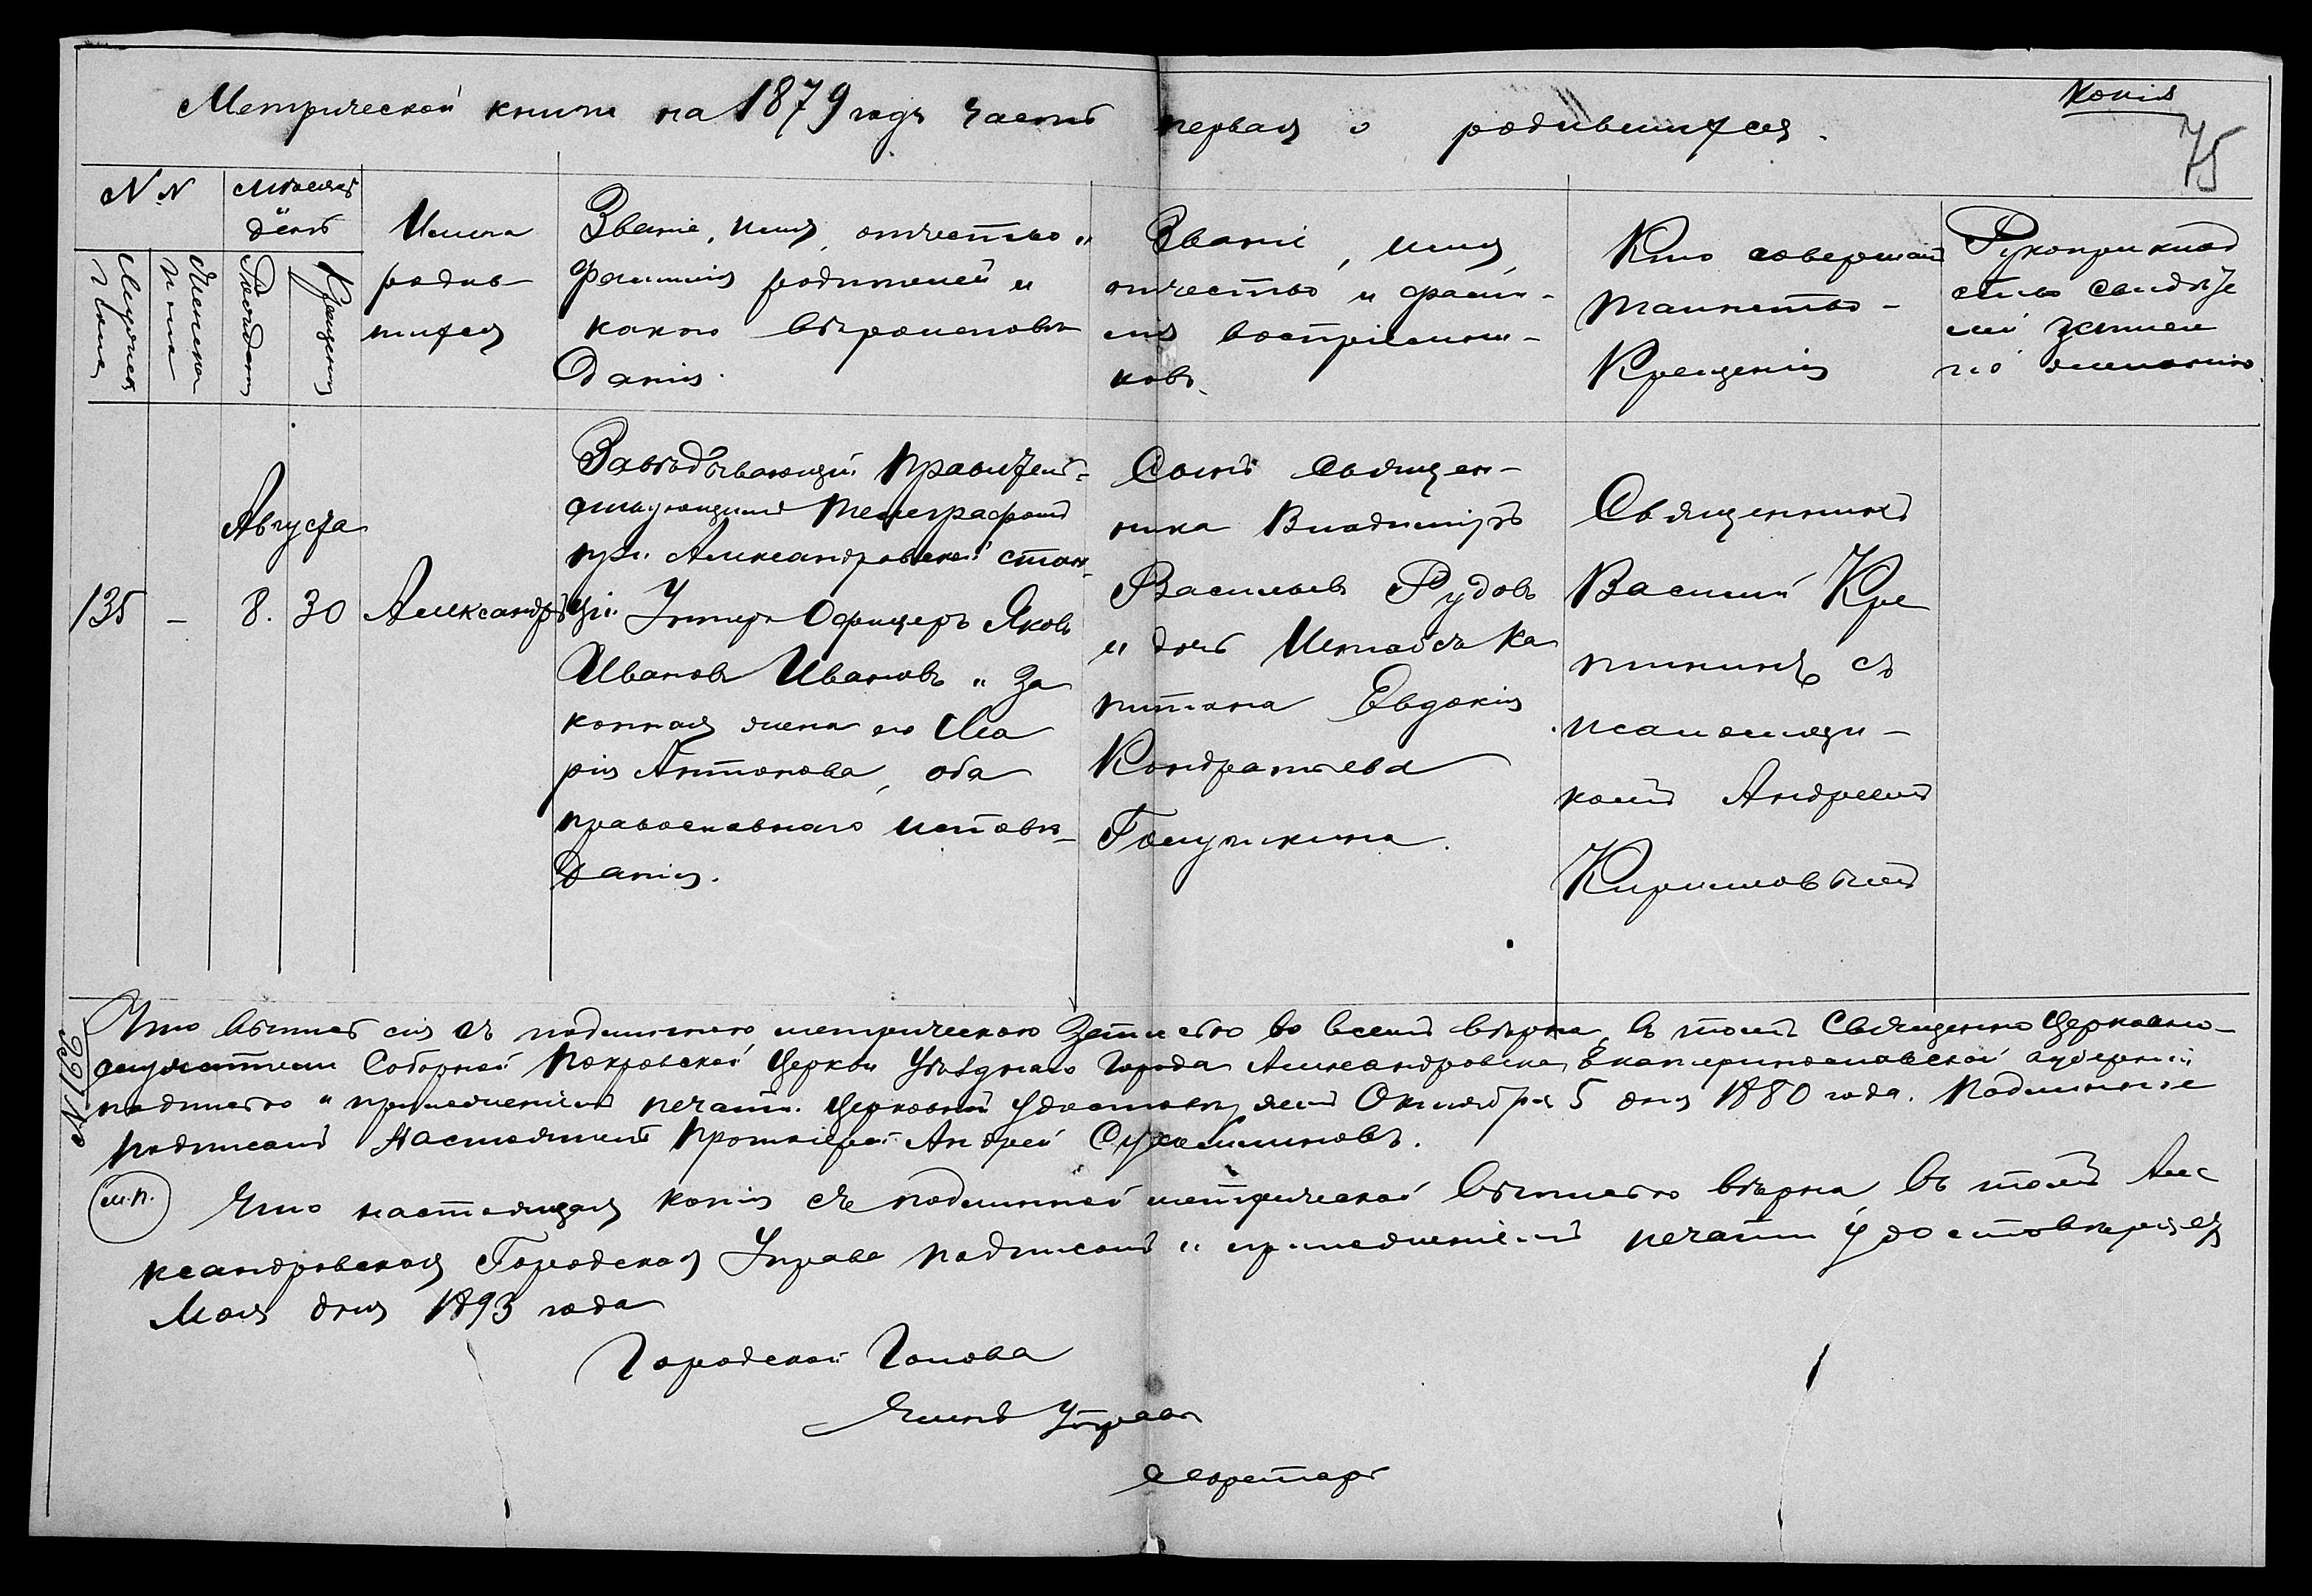 Копія
75
Метрической книги на 1879 годъ часть первая о родившихся.
N. N
Мужеска
пола
Женска
пола
Мѣсяцъ
день
Рожденія
Крещенія
Имена
родив-
шихся
Званіе, имя, отчество и
фамилія родителей и
какого вѣроисповѣ-
данія.
Званіе, имя,
отчество и фами-
лія воспріемни-
ковъ.
Кто совершалъ
таинство
Крещенія
Рукоприклад
ство свидѣте
лей записи
по желанію.
135
-
Августа
8. 30
Александръ
Завѣдывающій Правитель-
ствующимъ Телеграфомъ
при Александровской стан-
ціи Унтеръ Офицеръ Яковъ
Ивановъ Ивановъ и за
конная жена его Ма
рія Антонова, оба
православнаго исповѣ-
данія.
Сынъ Священ-
ника Владиміръ
Васильевъ Рудовъ
и дочь Штабсъ Ка
питана Евдокія
Кондратьева
Голушкина.
Священникъ
Василій Кре
съ
псаломщи-
комъ Андреемъ
Кириловымъ
Что выпись сія съ подлинною метрическою записью во всемъ вѣрна, въ томъ Священно Церковно-
служители Соборной Покровской Церкви Уѣзднаго Города Александровска, Екатеринославской губерніи
подписью и приложеніемъ печати Церковной удостовѣряемъ Октября 5 дня 1880 года. Подлинное
подписалъ Настоятель Протоіерей Андрей Сухомлиновъ.
N 166
М.П.
Что настоящая копія съ подлинной метрической выписью вѣрна, въ томъ Але
ксандровская Городская Управа подписомъ и приложеніемъ печати удостовѣряетъ
Мая дня 1893 года
Городской Голова
Членъ Управы
Секретарь